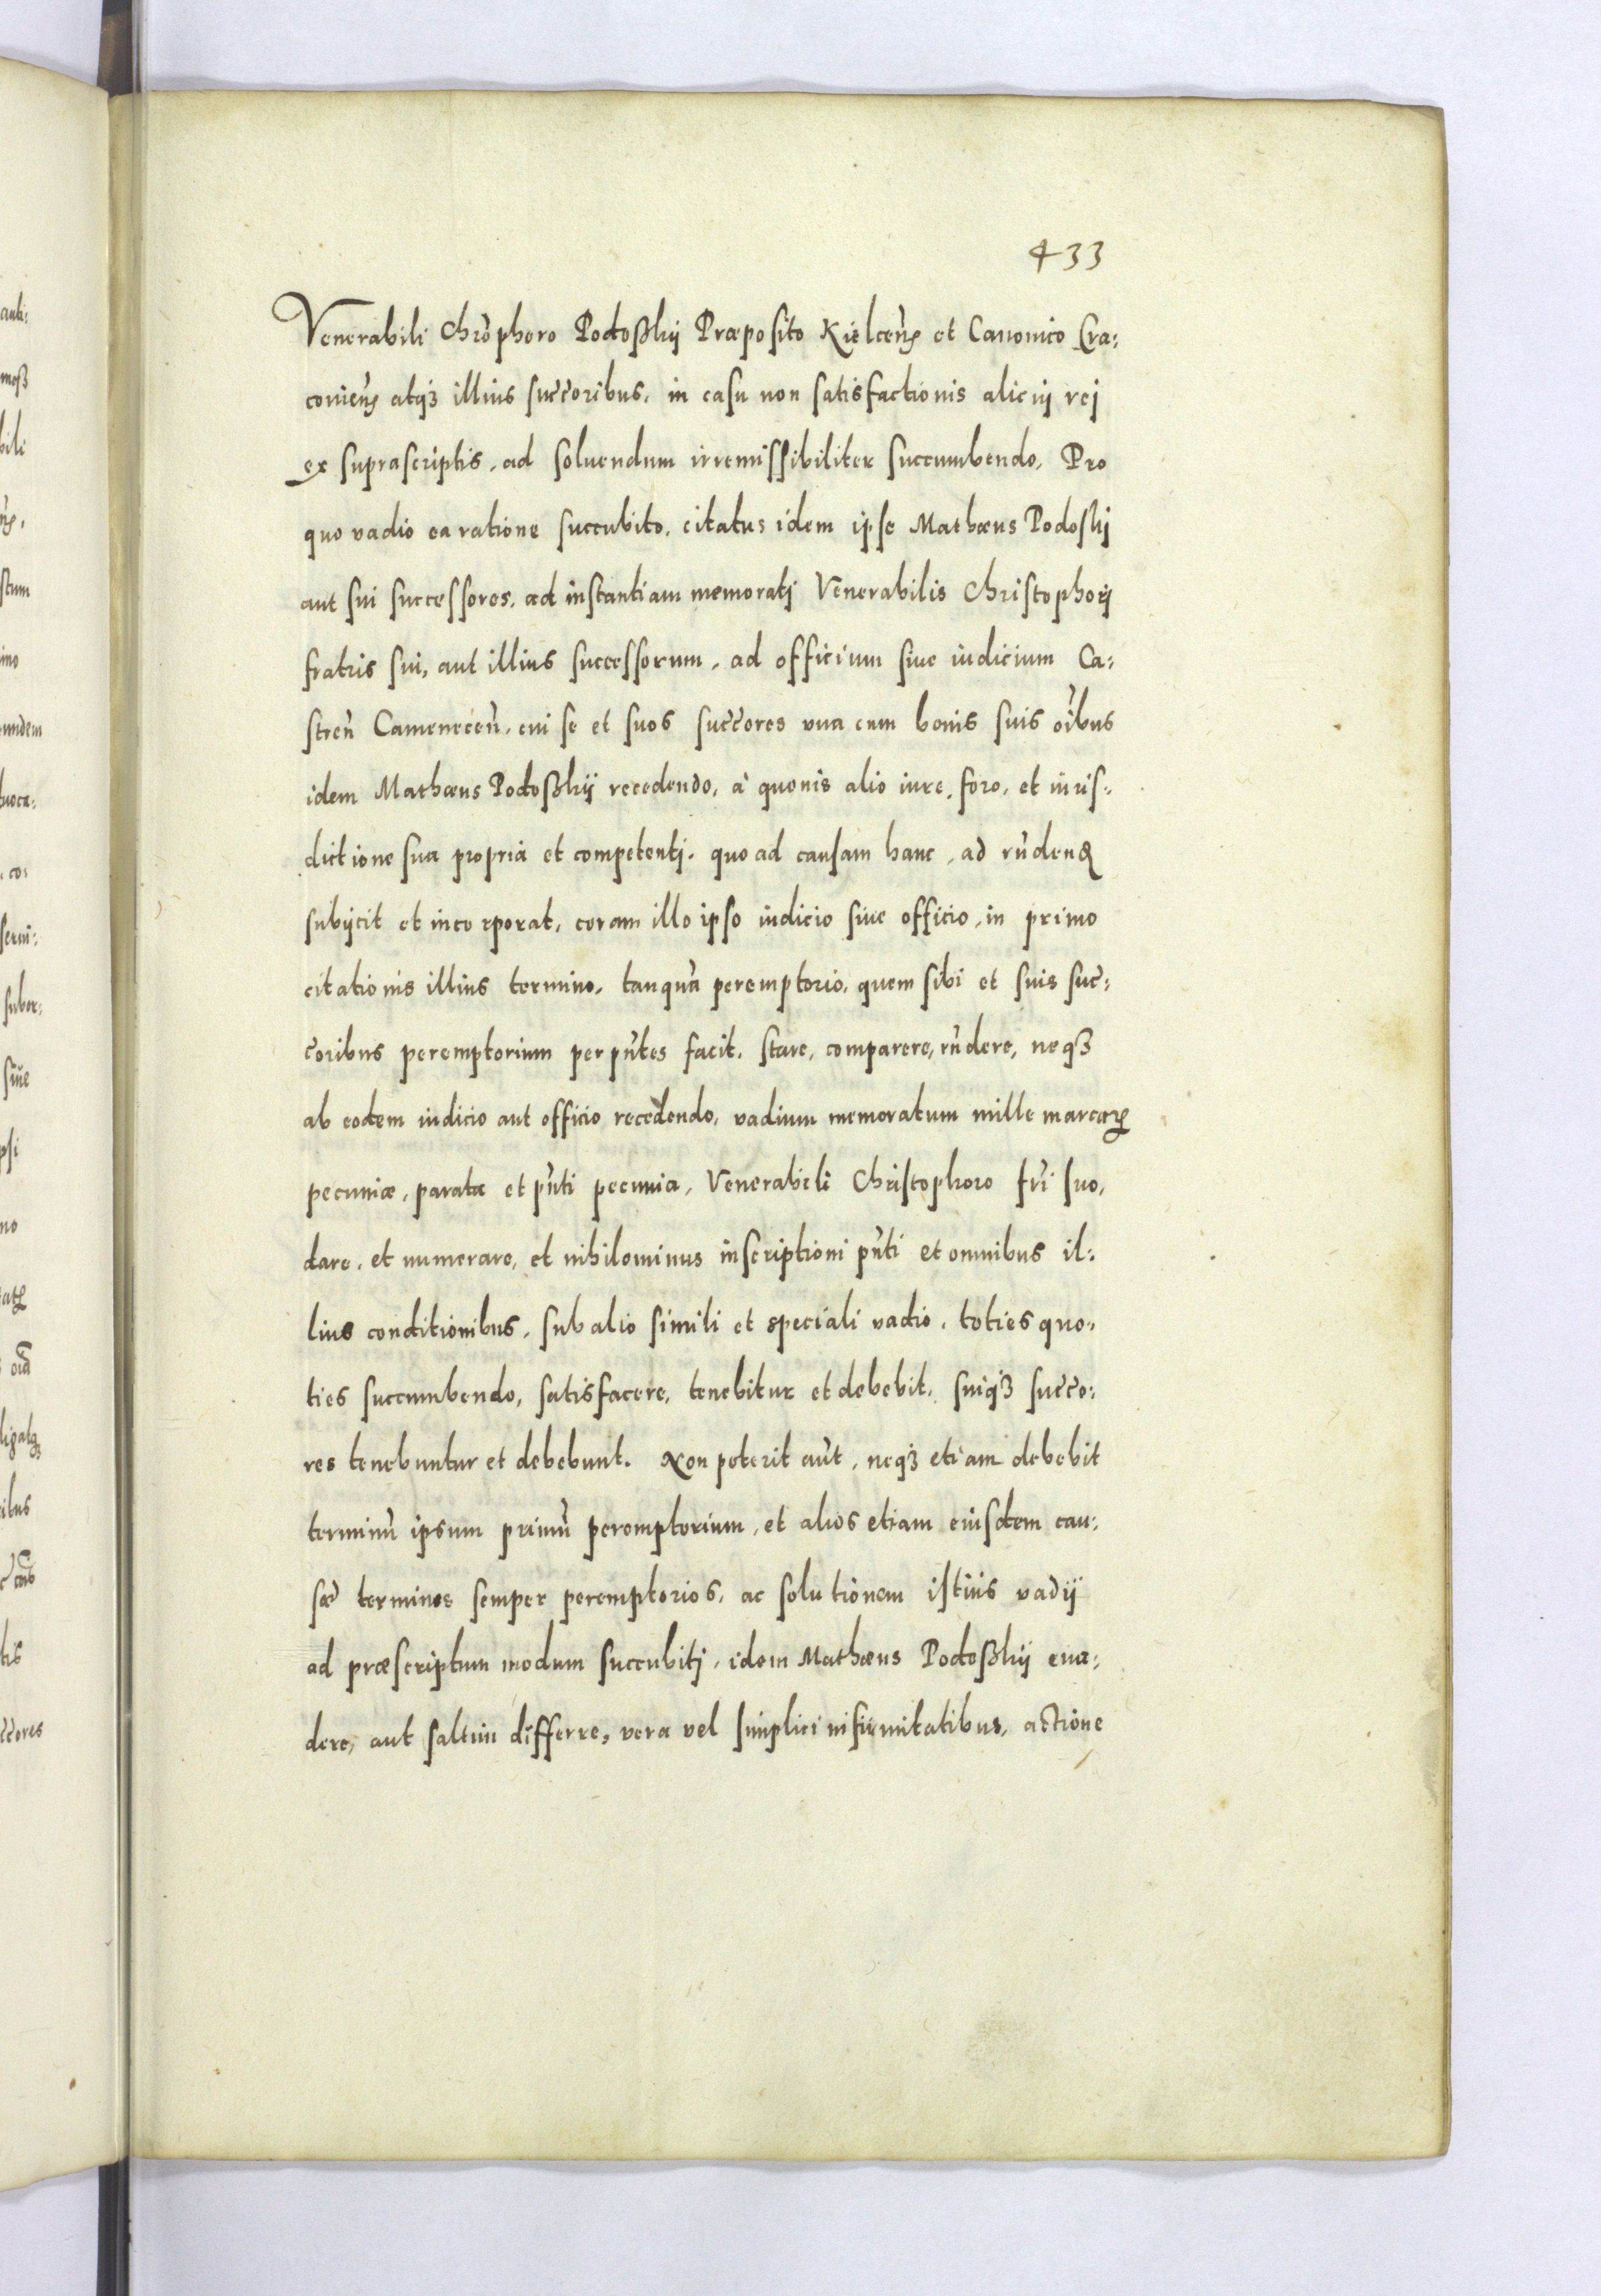 433
Venerabili Chrõphoro Podoßkij Præposito Kielceñ et Canonico Cra:
covieñ atqȝ illius succoribus, in casu non satisfactionis alicuj rej
ex suprascriptis, ad soluendum irremissibiliter succumbendo, Pro
quo vadio ea ratione succubito, citatus idem ipse Mathæus Podoskj
aut sui successores, ad instantiam memoratj Venerabilis Christophorj
fratris sui, aut illius successorum, ad officium siue iudicium Ca:
streñ Cameneceñ, cui se et suos succores vna cum bonis suis oĩbus
idem Mathæus Podoßkij recedendo, à quouis alio iure, foro, et iuris:
dictione sua propria et competentj, quo ad causam hanc, ad rñdend
subijcit et incorporat, coram illo ipso iudicio siue officio, in primo
citationis illius termino, tanquã peremptorio, quem sibi et suis suc:
coribus peremptorium per pñtes facit, stare, comparere, rñdere, neqȝ
ab eodem iudicio aut officio recedendo, vadium memoratum mille marcarꝝ
pecuniæ, parata et pñti pecunia, Venerabili Christophoro frĩ suo,
dare, et numerare, et nihilominus inscriptioni pñti et omnibus il:
lius conditionibus, sub alio simili et speciali vadio, toties quo:
ties succumbendo, satisfacere, tenebitur et debebit, suiqȝ succo:
res tenebuntur et debebunt. Non poterit aũt, neqȝ etiam debebit
terminũ ipsum primũ peremptorium, et alios etiam eiusdem cau:
sæ terminos semper peremptorios, ac solutionem istius vadij
ad præscriptum modum succubitj, idem Mathæus Podoßkij eua:
dere, aut saltim differre, vera vel simplici infirmitatibus, actione